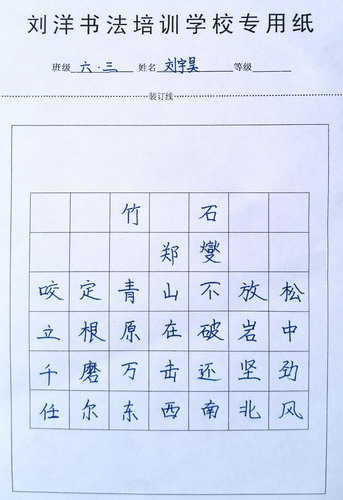 刘洋书法培训学校专用纸
班级 六·三 姓名 刘宇昊 等级
装订线
竹石
郑燮
咬定青山不放松
立根原在破岩中
千磨万击还坚劲
任尔东西南北风